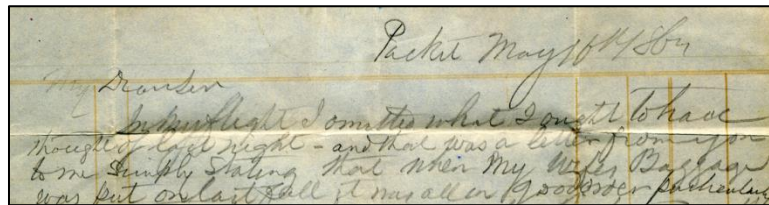 Packet May 10th/864
My Dear Sir
In My flight I omitted what I ought to have
thought of last night - and that was a letter from you
to me Simply Stating that when My Wifes Baggage
was put on last fall it was all in good order particularly